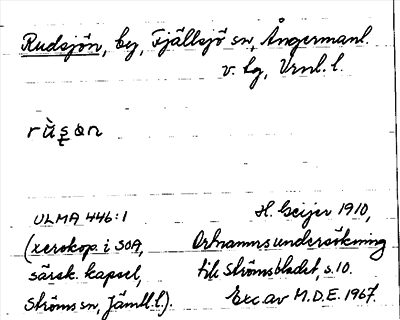 Rudsjön, by, Fjällsjö sn, Ångermanl.
v. lg, Vrnl. l.
rùs̱an
ULMA 446:1
(xerokop. i SOA,
särsk. kapsel,
Ströms sn, Jämtl. l.).
H. Geijer 1910,
Ortnamnsundersökning
till Strömsbladet, s. 10.
Exc av M.D.E. 1967.